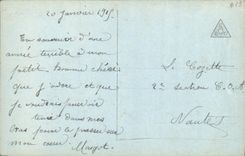 20 Janvier 1915
En souvenir d'une
année terrible à mon
petit homme chéri
que j'adore et que
je voudrais pouvoir
tenir dans mes
bras pour le presser sur
mon cœur. Margot.
L. Cozette
2e section C.O.A
Nantes